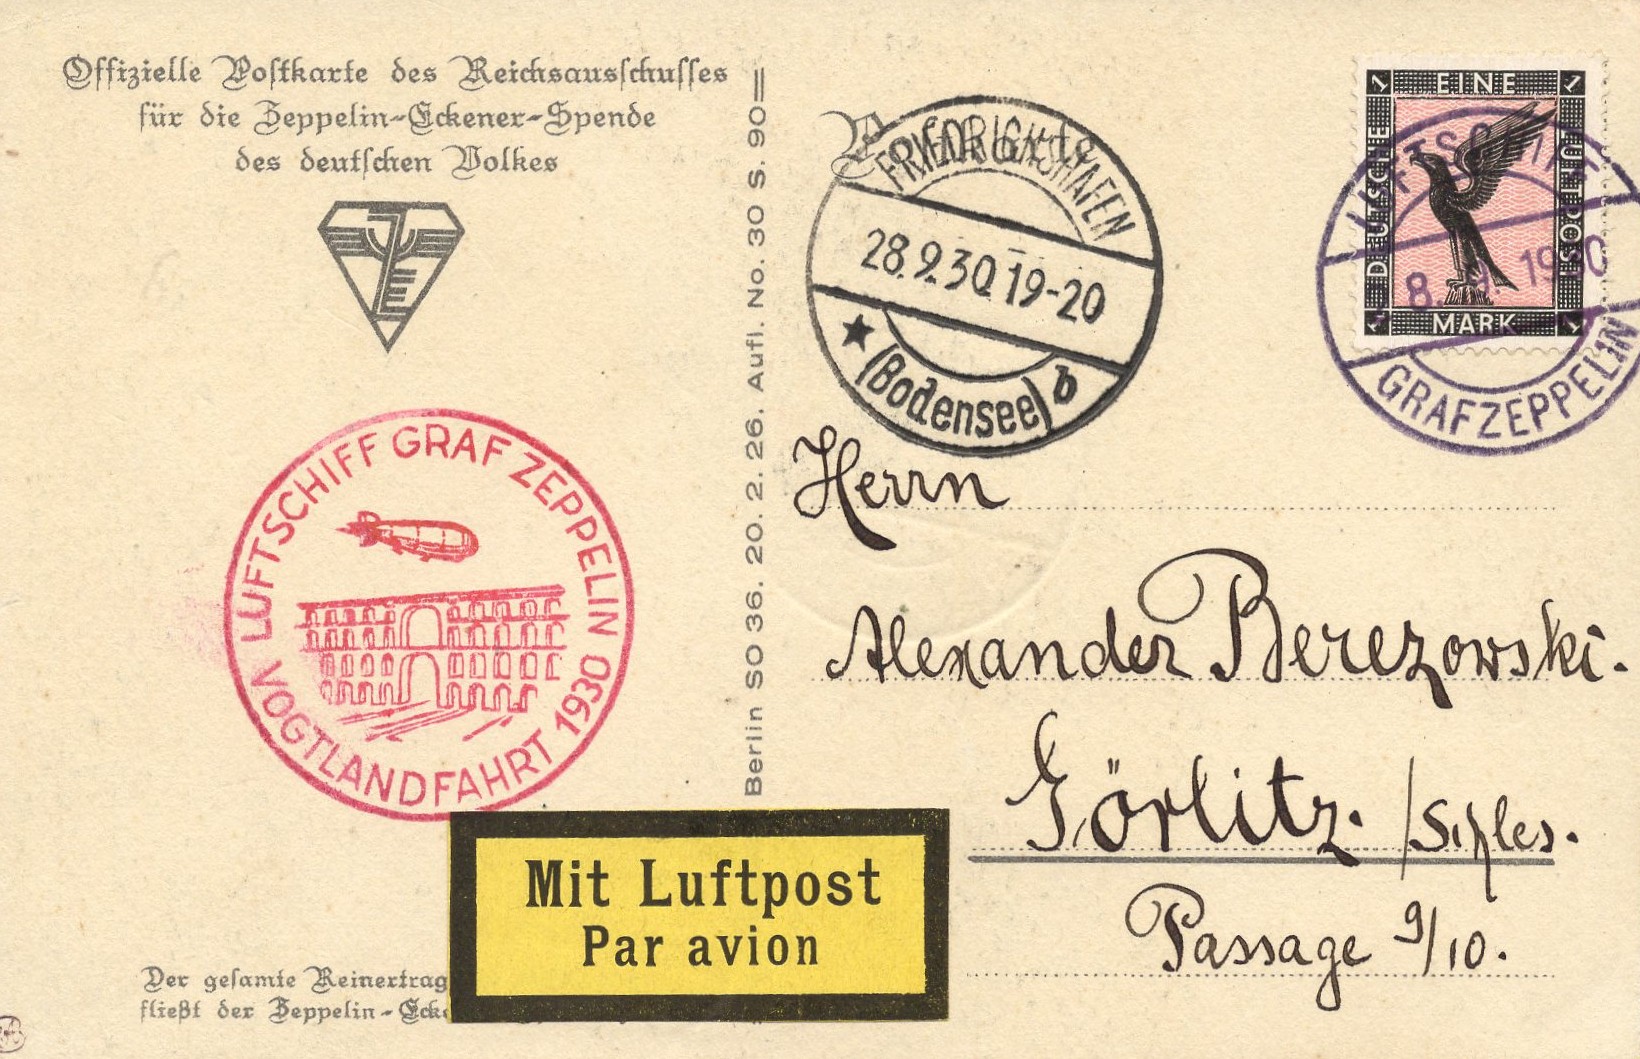 Offizielle Postkarte des Reichsausschusses
für die Zeppelin-Eckener-Spende
des deutschen Volkes
LUFTSCHIFF GRAF ZEPPELIN
VOGTLANDFAHRT 1930
Der gesamte Reinertrag
fließt der Zeppelin-Ecke
Mit Luftpost
Par avion
Berlin SO 36. 20. 2. 26. Aufl. No. 30 S. 90
Postkarte
FRIEDRICHSHAFEN
28.9.30 19-20
(Bodensee) b
1 EINE 1
DEUTSCHE
LUFTPOST
1 MARK 1
LUFTSCHIFF
8. 9. 1930
GRAF ZEPPELIN
Herrn
Alexander Berezowski.
Görlitz. /Schles.
Passage 9/10.